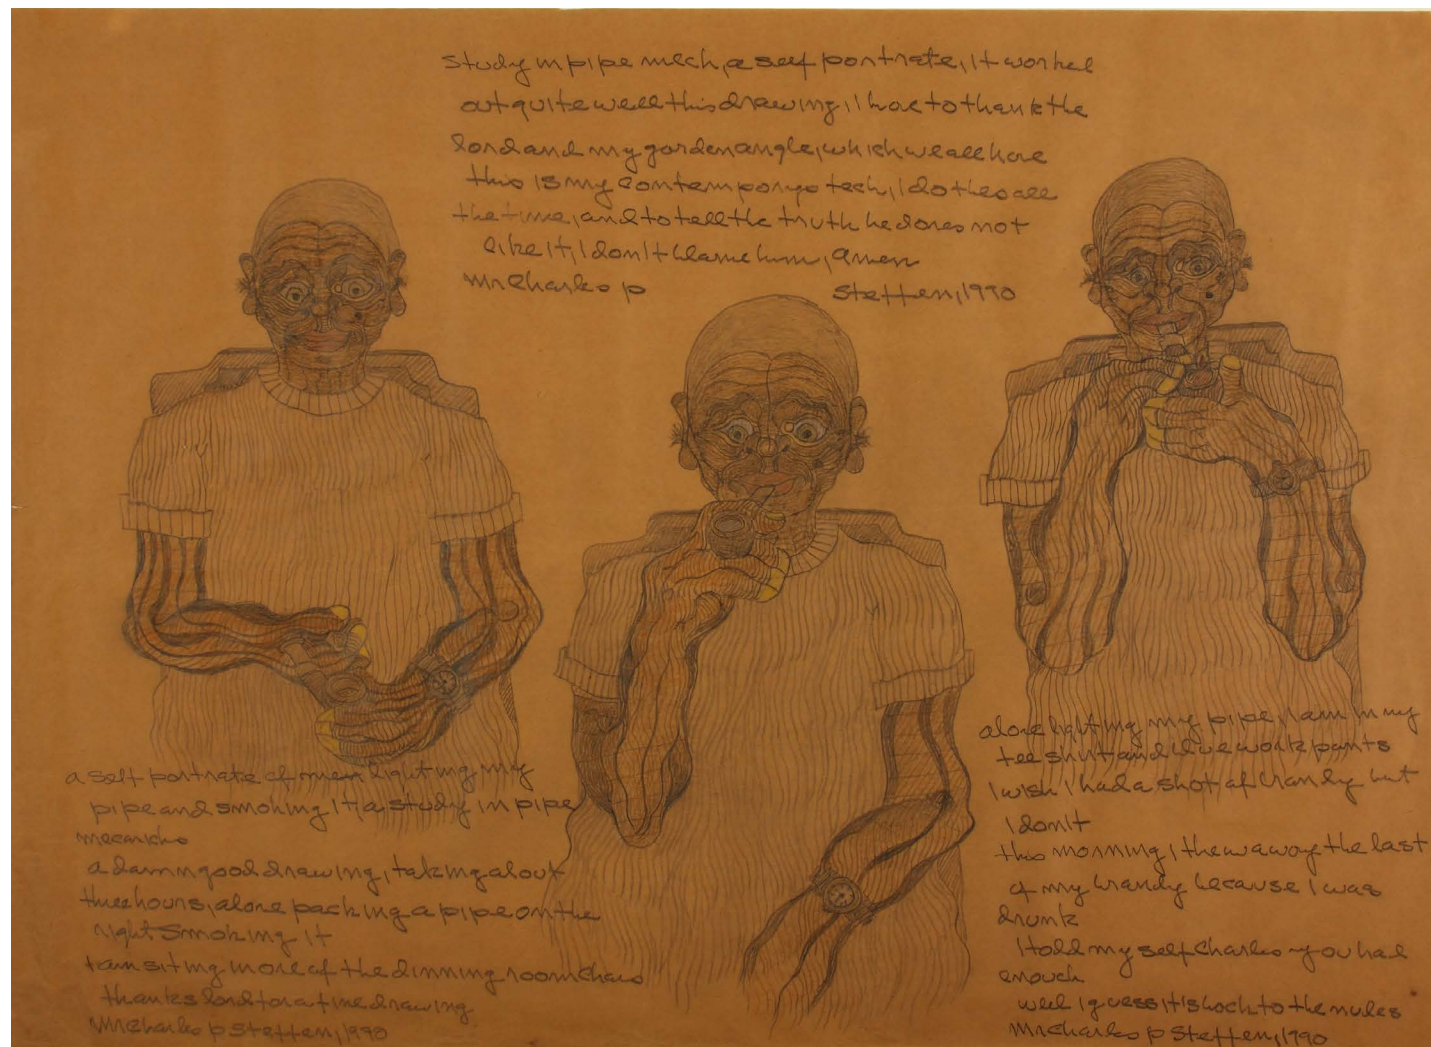 study in pipe mech, a self portrate, it worked
out quite well this drawing, I have to thank the
lord and my garden angle, which we all have
this is my contemporyo tech, I do this all
the time, and to tell the truth he does not
like it, I don't blame him, amen
Mr Charles p Steffen, 1990
a self portrate of me lighting my
pipe and smoking it, a study in pipe
mecanicks
a damn good drawing, taking about
three hours, alone packing a pipe on the
right smoking it
I am siting in one of the dinning room chairs
thanks lord for a fine drawing
Mr Charles p Steffen, 1990
alone lighting my pipe, I am in my
tee shirt and blue work pants
I wish I had a shot of brandy but
I don't
this morning, I threw away the last
of my brandy because I was
drunk
I told my self Charles you had
enouch
well I guess it's back to the nudes
Mr Charles p Steffen, 1990